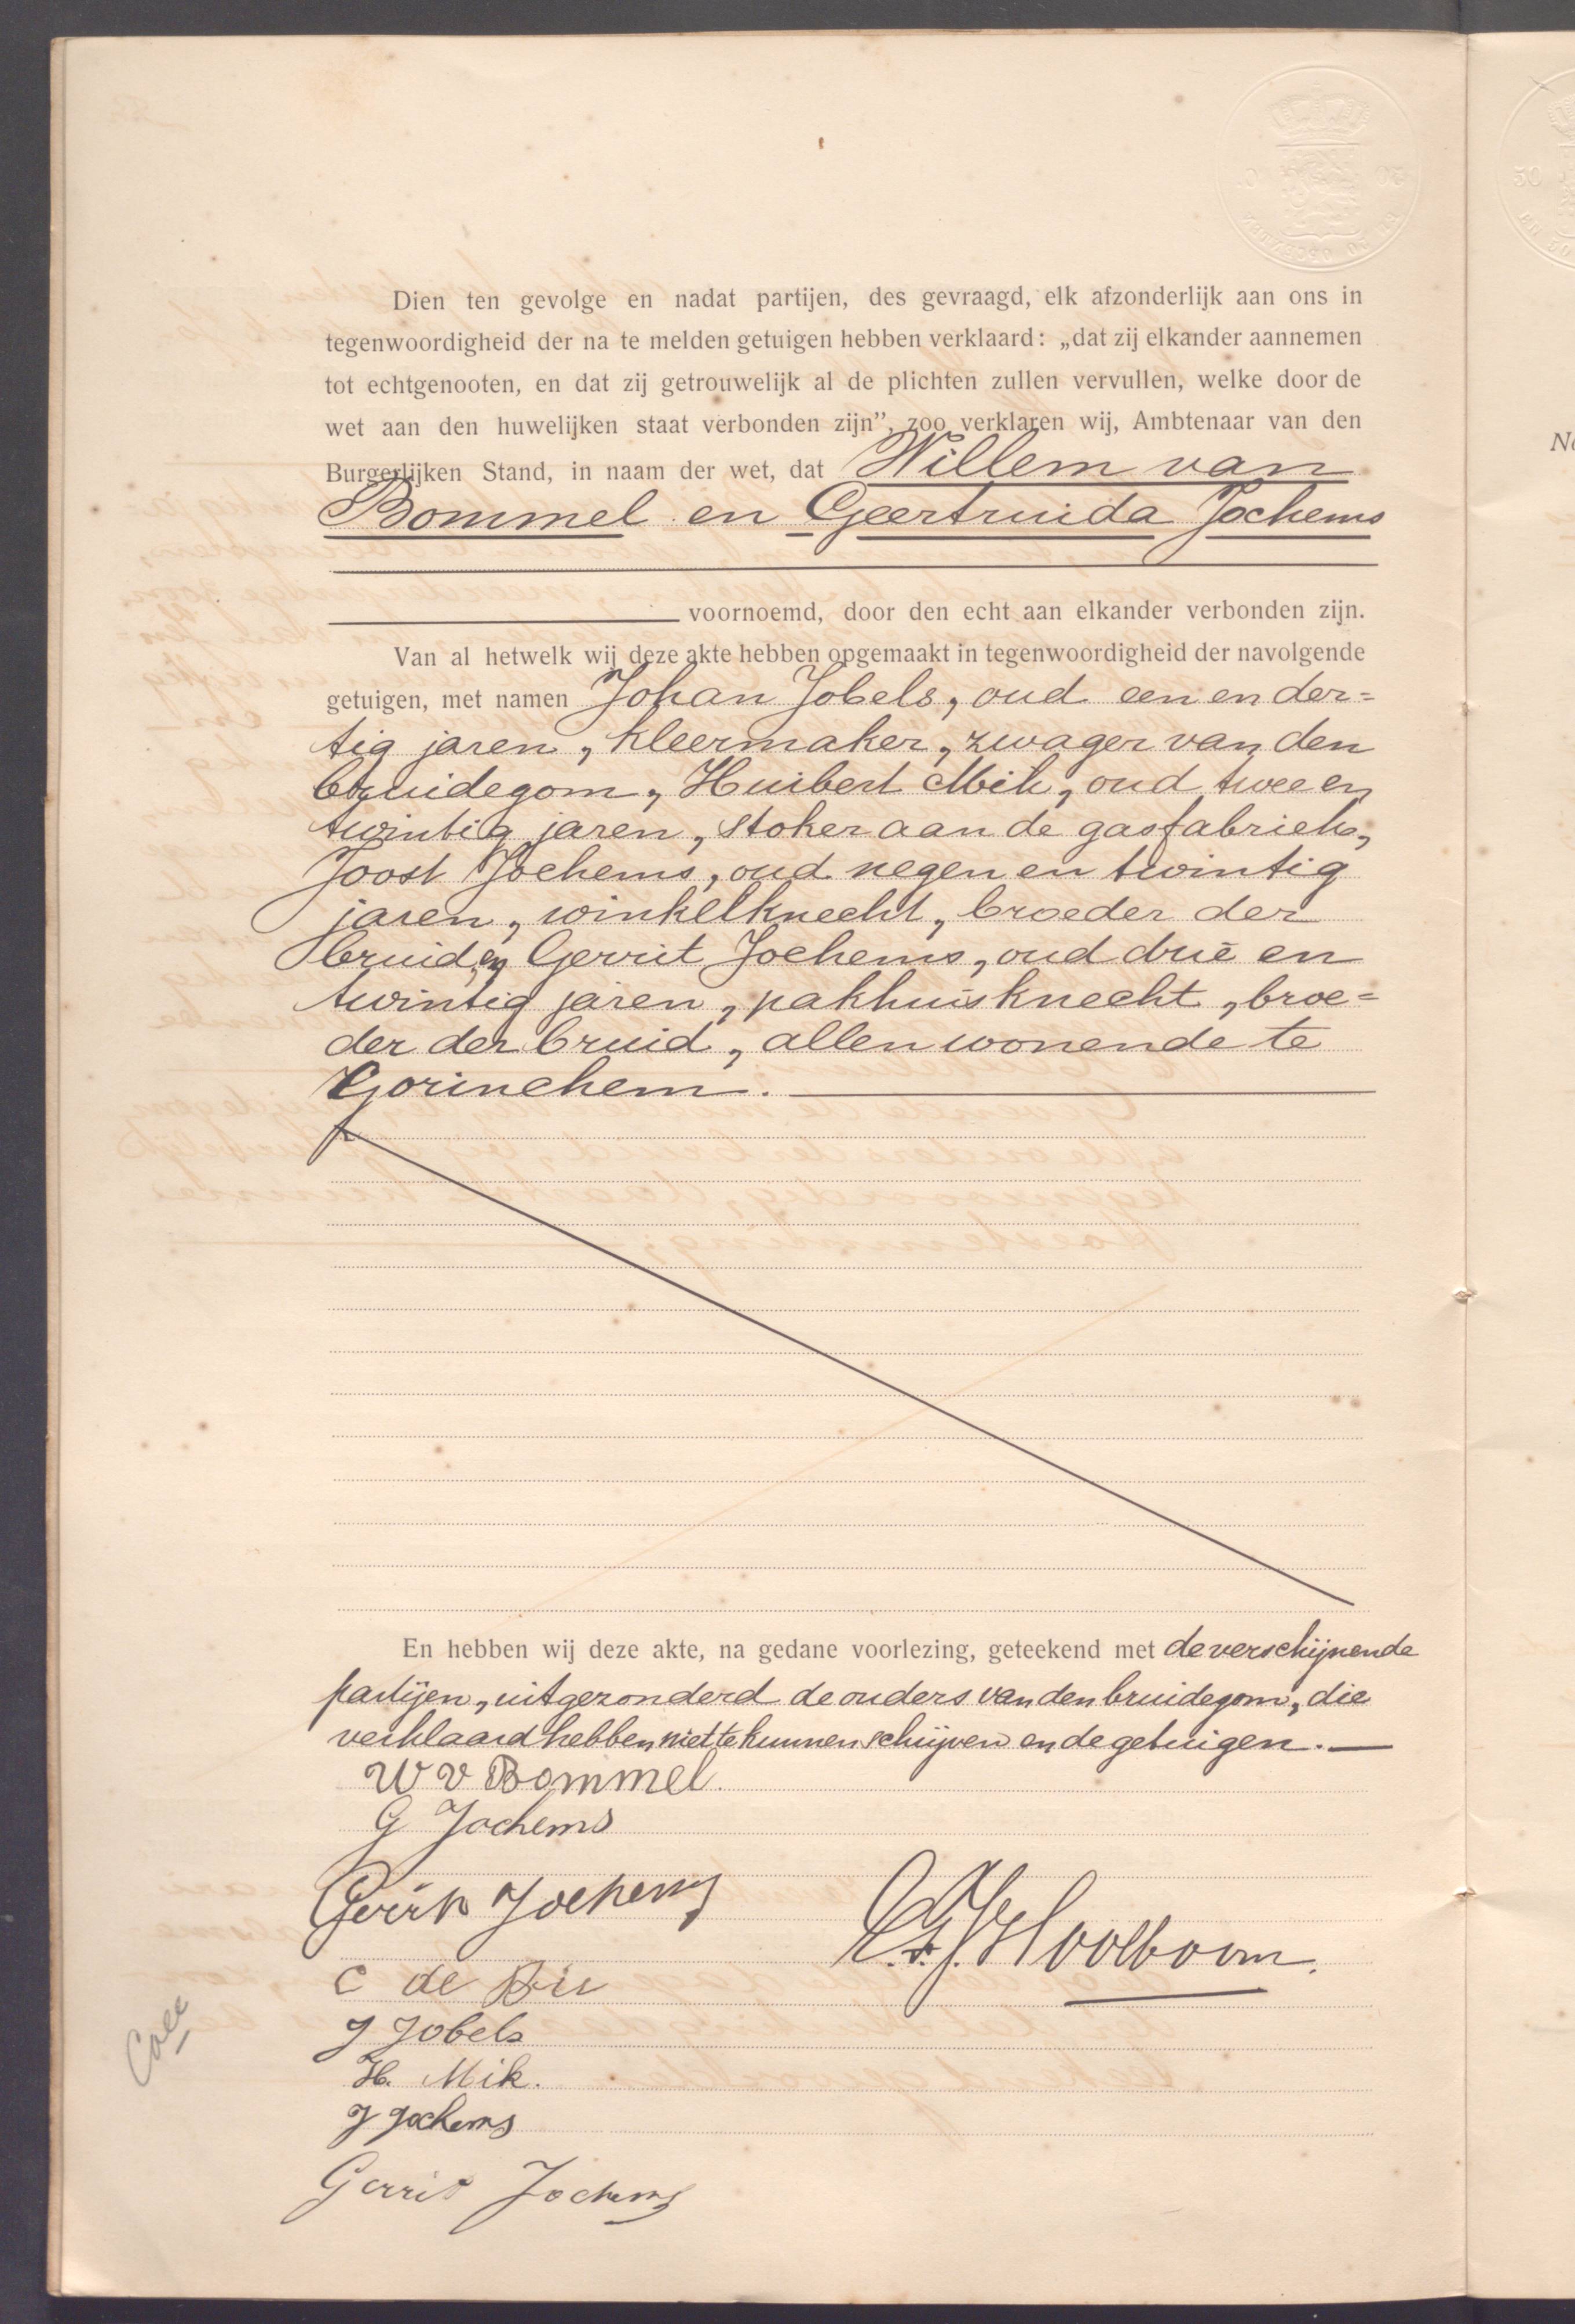 Dien ten gevolge en nadat partijen, des gevraagd, elk afzonderlijk aan ons in
tegenwoordigheid der na te melden getuigen hebben verklaard: „dat zij elkander aannemen
tot echtgenooten, en dat zij getrouwelijk al de plichten zullen vervullen, welke door de
wet aan den huwelijken staat verbonden zijn”, zoo verklaren wij, Ambtenaar van den
Burgerlijken Stand, in naam der wet, dat Willem van
Bommel en Geertruida Jochems
voornoemd, door den echt aan elkander verbonden zijn.
Van al hetwelk wij deze akte hebben opgemaakt in tegenwoordigheid der navolgende
getuigen, met namen Johan Jobels, oud een en der=
tig jaren, kleermaker, zwager van den
bruidegom, Huibert Mik, oud twee en
twintig jaren, stoker aan de gasfabriek,
Joost Jochems, oud negen en twintig
jaren, winkelknecht, broeder der
bruid, en Gerrit Jochems, oud drie en
twintig jaren, pakhuisknecht, broe=
der der bruid, allen wonende te
Gorinchem.
En hebben wij deze akte, na gedane voorlezing, geteekend met de verschijnende
partijen, uitgezonderd de ouders van den bruidegom, die
verklaard hebben niet te kunnen schrijven en de getuigen.
W v Bommel
G Jochems
Gerrit Jochems
Hoolboom.
C de
J Jobels
H. Mik.
J Jochems
Gerrit Jochems